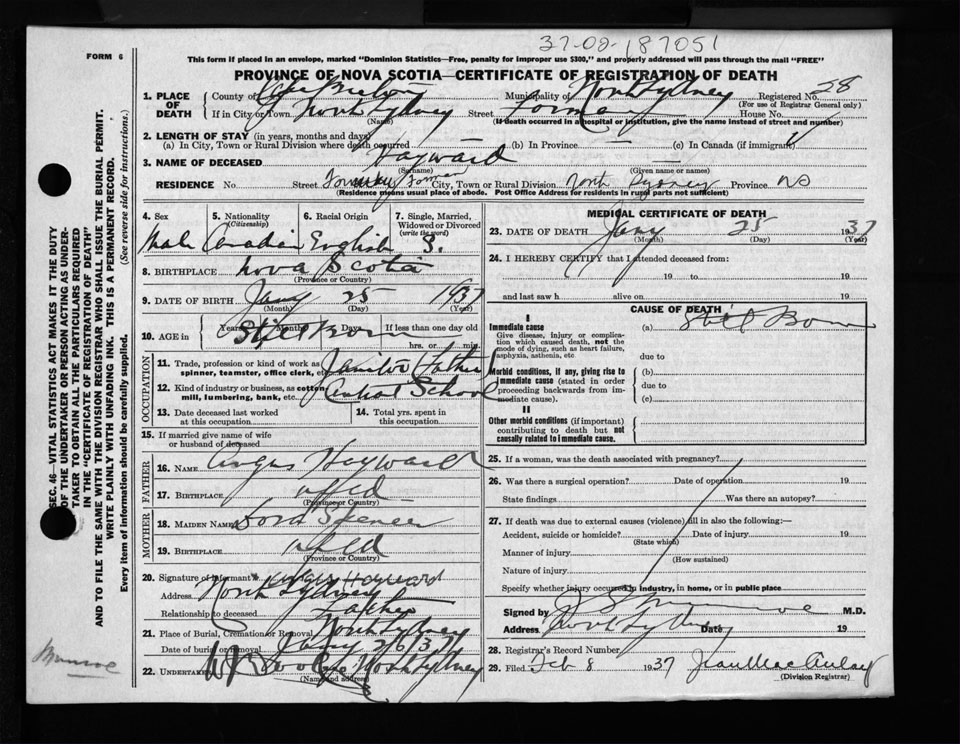 37-02-187051
FORM 6
This form if placed in an envelope, marked "Dominion Statistics—Free, penalty for improper use $300," and properly addressed will pass through the mail "FREE"
PROVINCE OF NOVA SCOTIA—CERTIFICATE OF REGISTRATION OF DEATH
SEC. 46—VITAL STATISTICS ACT MAKES IT THE DUTY
OF THE UNDERTAKER OR PERSON ACTING AS UNDER-
TAKER TO OBTAIN ALL THE PARTICULARS REQUIRED
IN THE "CERTIFICATE OF REGISTRATION OF DEATH"
AND TO FILE THE SAME WITH THE DIVISION REGISTRAR WHO SHALL ISSUE THE BURIAL PERMIT.
WRITE PLAINLY WITH UNFADING INK. THIS IS A PERMANENT RECORD.
Every item of information should be carefully supplied. (See reverse side for instructions.)
1. PLACE OF DEATH
County of Cape Breton Municipality of North Sydney Registered No. 28
(For use of Registrar General only)
If in City or Town North Sydney Street House No.
(Name) (If death occurred in a hospital or institution, give the name instead of street and number)
2. LENGTH OF STAY (in years, months and days)
(a) In City, Town or Rural Division where death occurred (b) In Province — (c) In Canada (if immigrant)
3. NAME OF DECEASED Hayward —
(Surname) (Given name or names)
RESIDENCE No. Street City, Town or Rural Division North Sydney Province NS
(Residence means usual place of abode. Post Office Address for residents in rural parts not sufficient)
4. Sex 5. Nationality (Citizenship) 6. Racial Origin 7. Single, Married, Widowed or Divorced (write the word)
Male Canadian English S.
8. BIRTHPLACE Nova Scotia
(Province or Country)
9. DATE OF BIRTH Jany 25 1937
(Month) (Day) (Year)
10. AGE in Years Months Days If less than one day old
Still Born hrs. or min.
OCCUPATION
11. Trade, profession or kind of work as spinner, teamster, office clerk, etc. Janitor (Father)
12. Kind of industry or business, as cotton mill, lumbering, bank, etc. Central School
13. Date deceased last worked at this occupation 14. Total yrs. spent in this occupation
15. If married give name of wife or husband of deceased
FATHER
16. NAME Angus Hayward
17. BIRTHPLACE Nfld
(Province or Country)
MOTHER
18. MAIDEN NAME Dora Spencer
19. BIRTHPLACE Nfld
(Province or Country)
20. Signature of informant Angus Hayward
Address North Sydney
Relationship to deceased Father
21. Place of Burial, Cremation or Removal North Sydney
Date of burial or removal Jany 26/37
22. UNDERTAKER North Sydney
(Name and address)
Munroe
MEDICAL CERTIFICATE OF DEATH
23. DATE OF DEATH Jany 25 1937
(Month) (Day) (Year)
24. I HEREBY CERTIFY that I attended deceased from:
19 to 19
and last saw h alive on 19
CAUSE OF DEATH
I
Immediate cause (a) Still Born
Give disease, injury or complication which caused death, not the mode of dying, such as heart failure, asphyxia, asthenia, etc due to
Morbid conditions, if any, giving rise to immediate cause (stated in order proceeding backwards from immediate cause). (b) due to (c)
II
Other morbid conditions (if important) contributing to death but not causally related to immediate cause.
25. If a woman, was the death associated with pregnancy?
26. Was there a surgical operation? Date of operation 19
State findings Was there an autopsy?
27. If death was due to external causes (violence) fill in also the following:—
Accident, suicide or homicide? Date of injury 19
(State which)
Manner of injury
(How sustained)
Nature of injury
Specify whether injury occurred in industry, in home, or in public place
Signed by M.D.
Address North Sydney Date 19
28. Registrar's Record Number
29. Filed Feb 8 1937 Jean MacAulay
(Division Registrar)